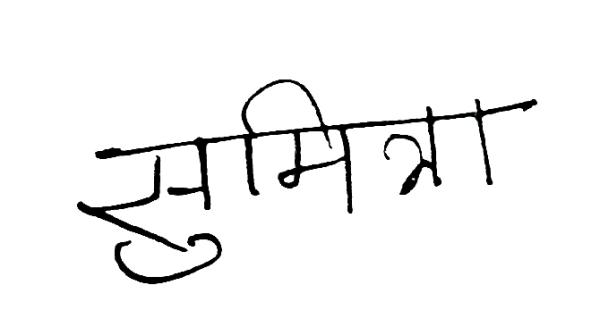 सुमित्रा